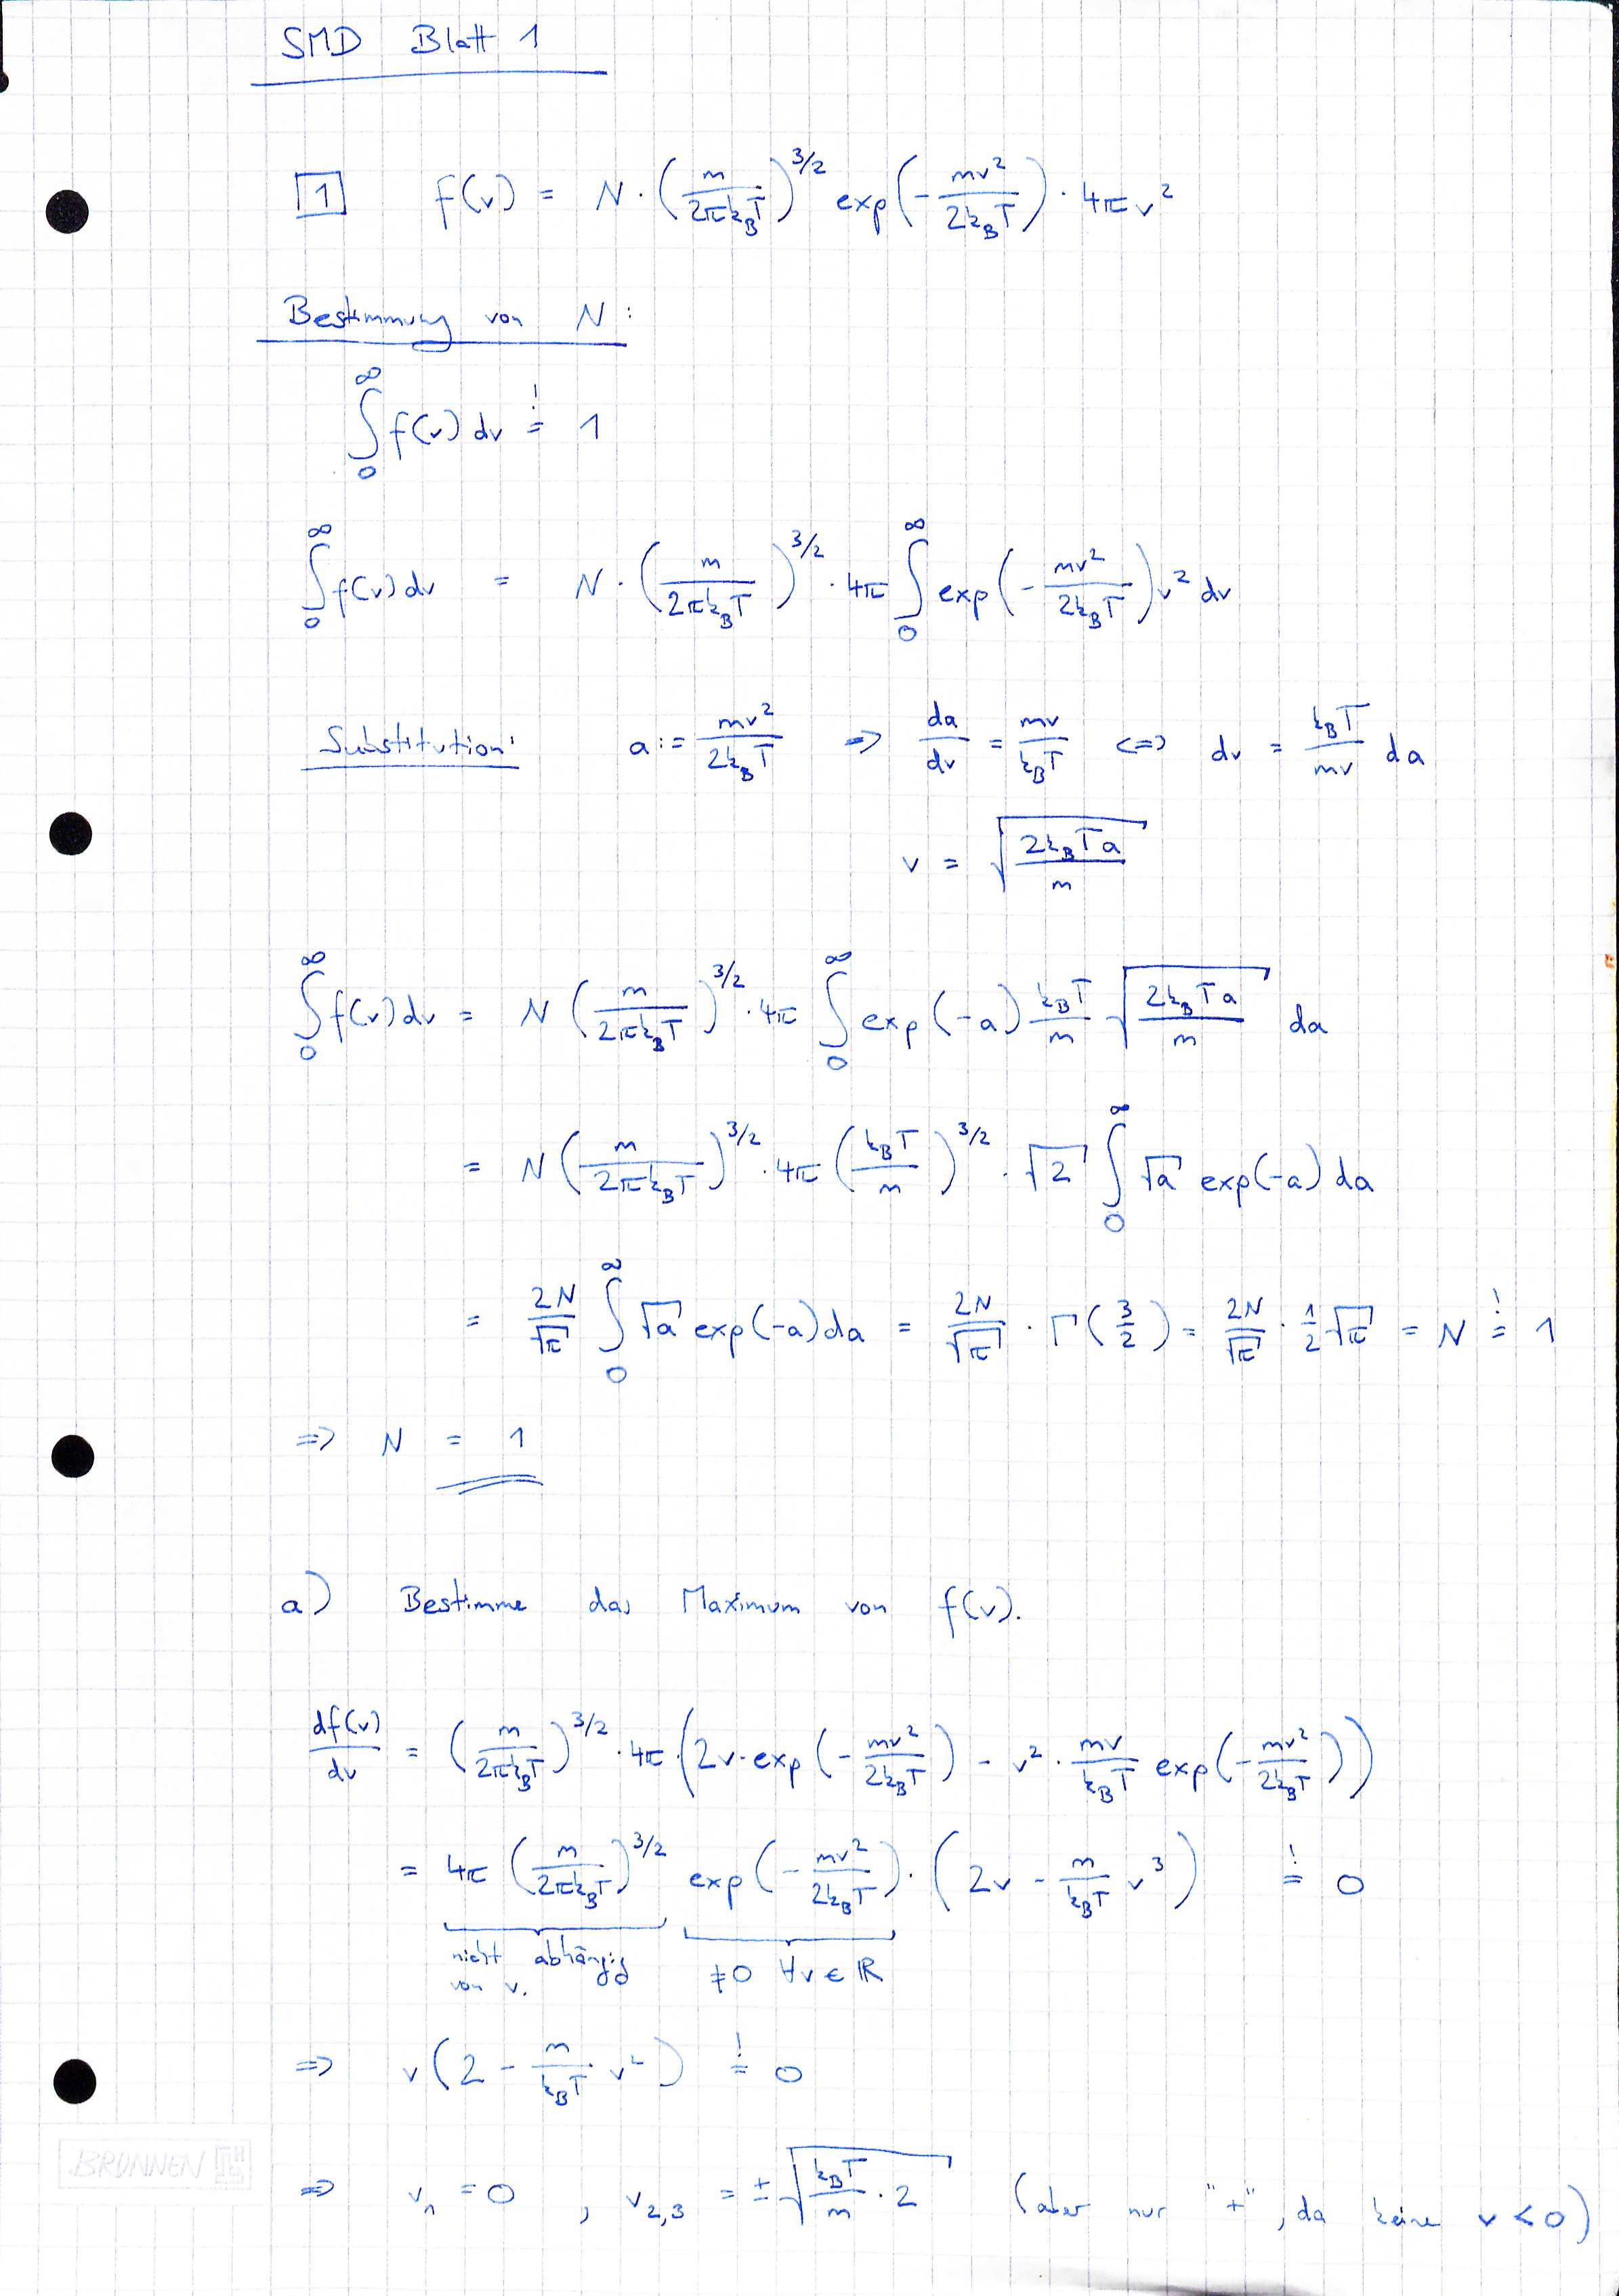 SMD Blatt 1
1 f(v) = N · (m / 2πk_BT)^{3/2} exp(- mv² / 2k_BT) · 4πv²
Bestimmung von N:
∫_0^∞ f(v) dv =! 1
∫_0^∞ f(v) dv = N · (m / 2πk_BT)^{3/2} · 4π ∫_0^∞ exp(- mv² / 2k_BT) v² dv
Substitution: a := mv² / 2k_BT => da/dv = mv / k_BT <=> dv = k_BT / mv da
v = √(2k_BTa / m)
∫_0^∞ f(v) dv = N (m / 2πk_BT)^{3/2} · 4π ∫_0^∞ exp(-a) k_BT / m √(2k_BTa / m) da
= N (m / 2πk_BT)^{3/2} · 4π (k_BT / m)^{3/2} · √2 ∫_0^∞ √a exp(-a) da
= 2N/√π ∫_0^∞ √a exp(-a) da = 2N/√π · Γ(3/2) = 2N/√π · 1/2 √π = N =! 1
=> N = 1
a) Bestimme das Maximum von f(v).
df(v)/dv = (m / 2πk_BT)^{3/2} · 4π · (2v · exp(- mv² / 2k_BT) - v² · mv / k_BT exp(- mv² / 2k_BT))
= 4π (m / 2πk_BT)^{3/2} exp(- mv² / 2k_BT) · (2v - m / k_BT v³) =! 0
nicht abhängig ≠0 ∀v ∈ ℝ
von v.
=> v(2 - m / k_BT v²) =! 0
=> v₁ = 0 , v_{2,3} = ±√(k_BT / m · 2) (aber nur "+", da keine v < 0)
BRUNNEN